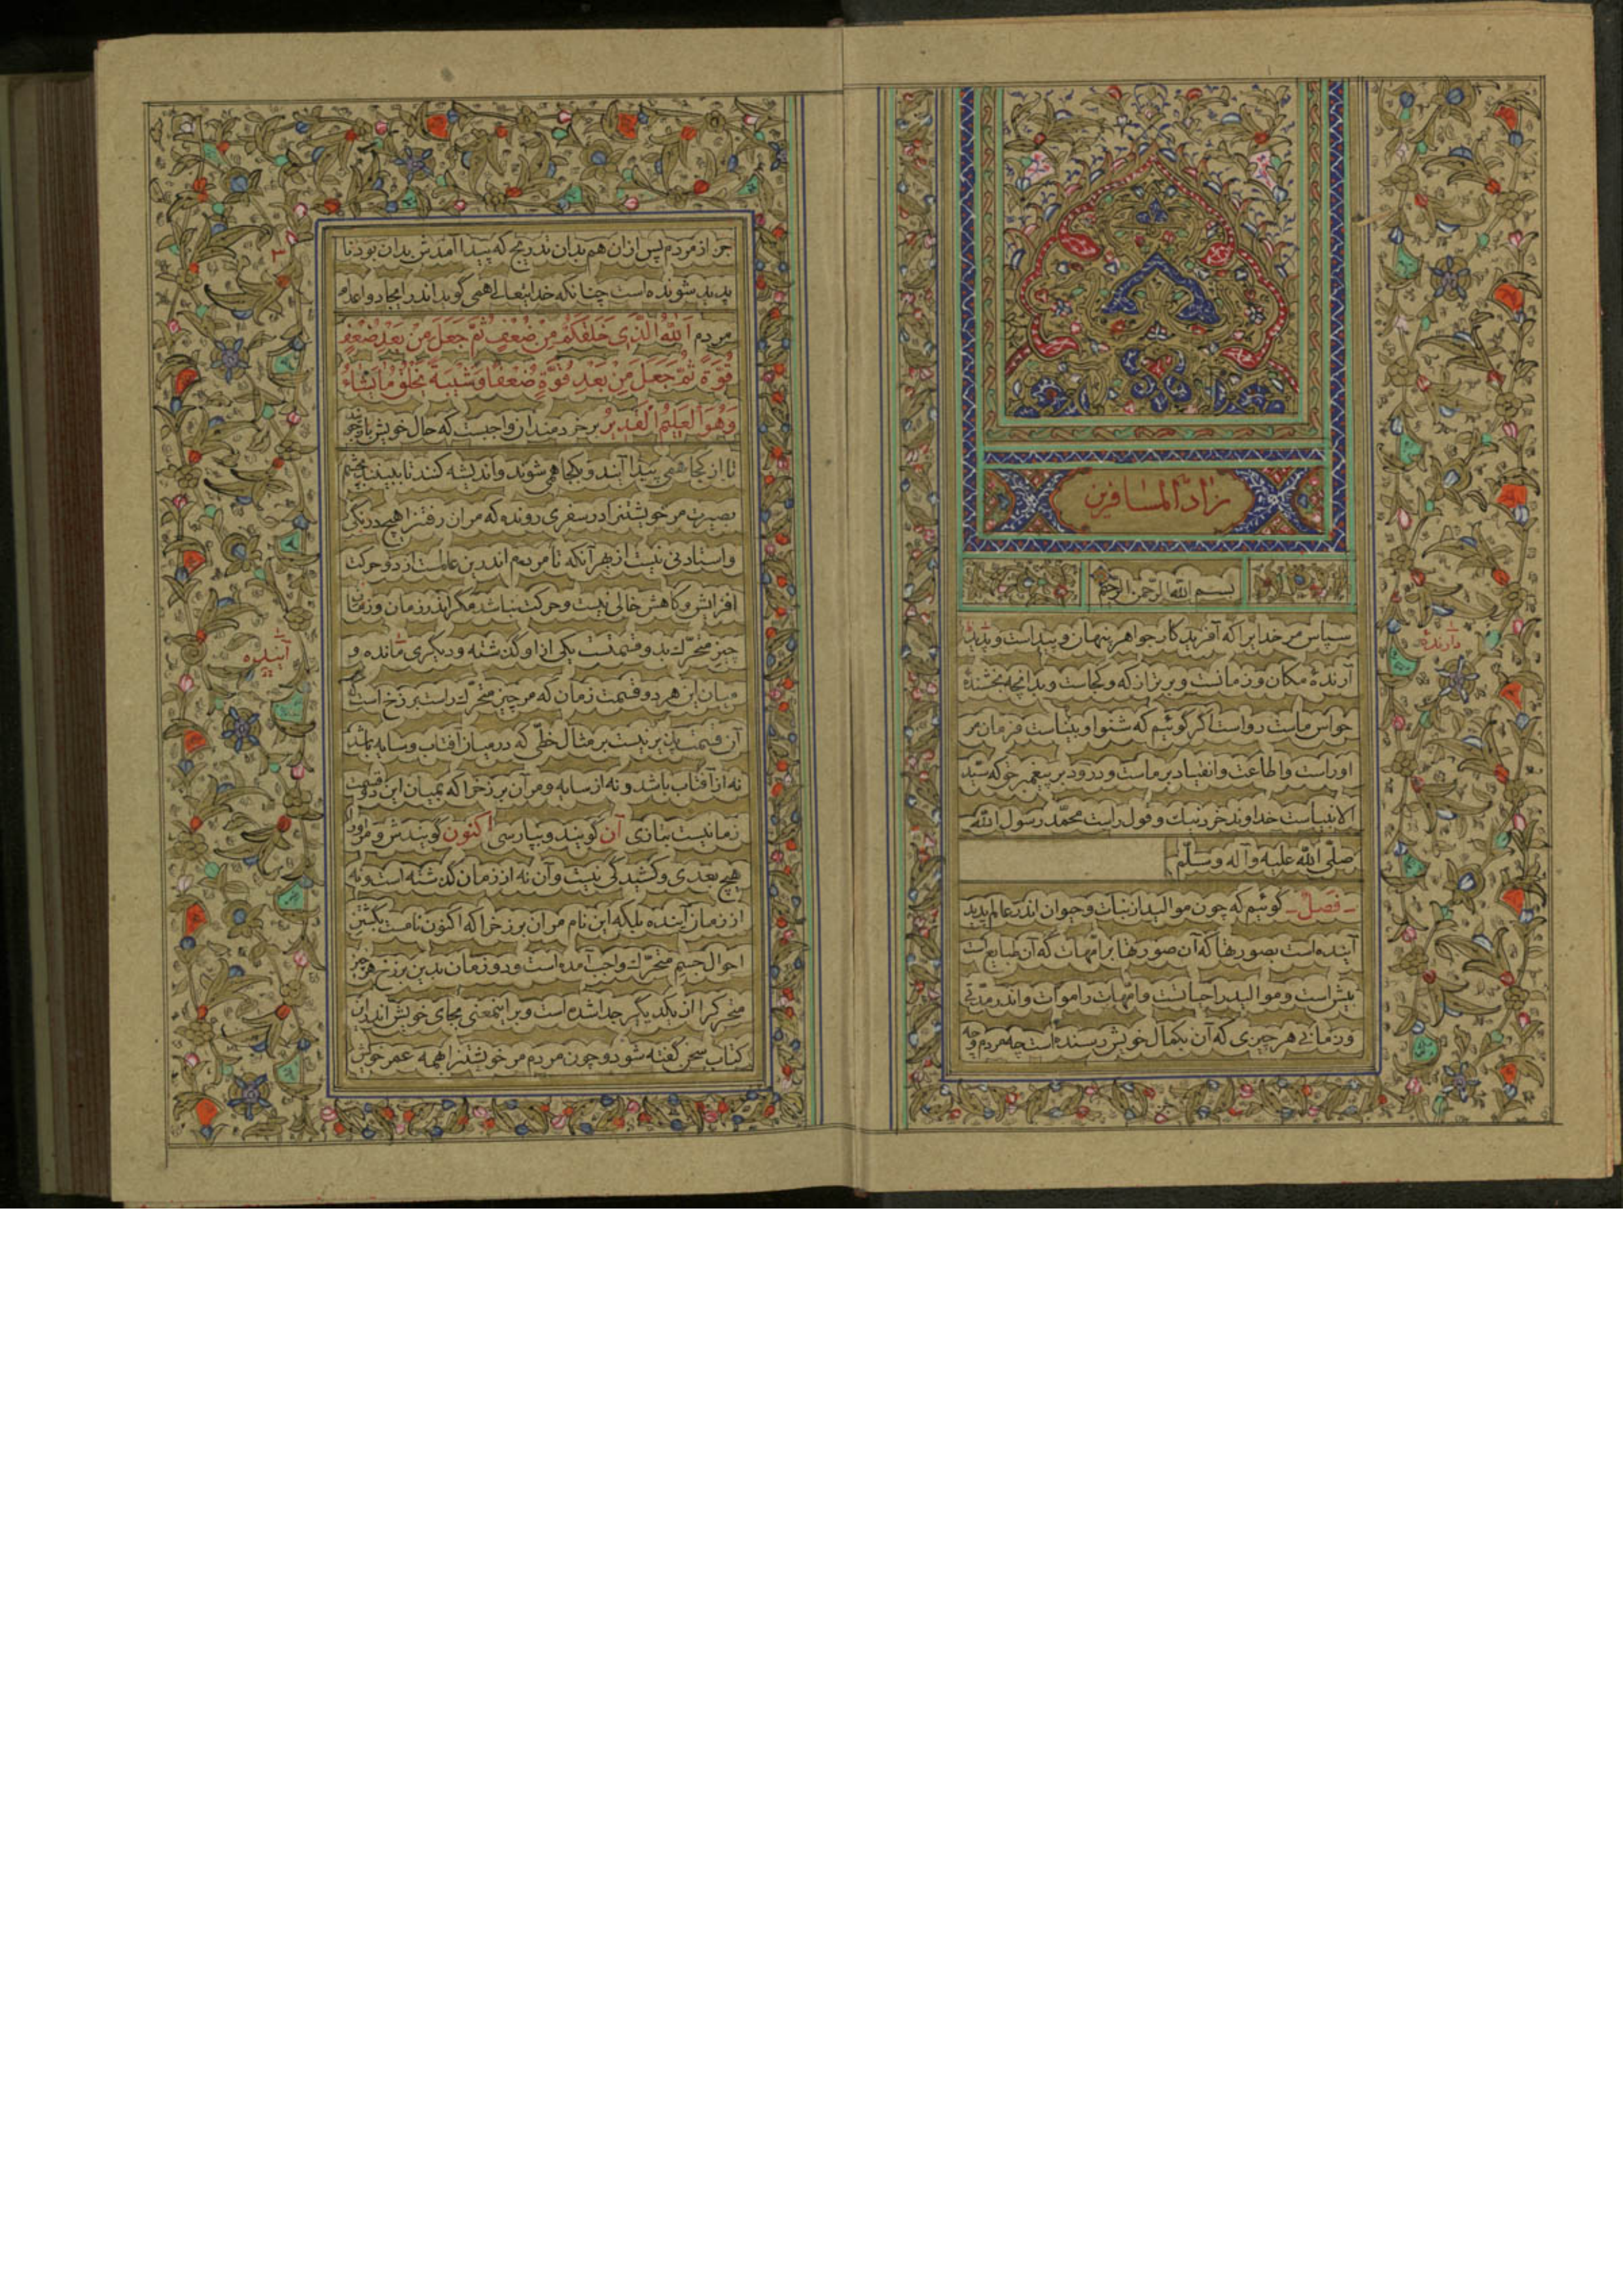 زاد المسافرین
بسم الله الرحمن الرحیم
سپاس مر خدایرا که آفریدگار جواهر پنهان و پیداست و پدید
دارنده
آرندهٔ مکان و زمانست و برتر از که و کجاست و بدانچه بخشندهٔ
حواس ماست رواست اگر گوئیم که شنوا و بیناست فرمان مر
اوراست و اطاعت و انقیاد بر ماست و درود بر پیغمبر حق که سید
الانبیاست خداوند خرد نیک و قول راست محمّد رسول الله
صلّی الله علیه و آله و سلّم
فصل گوئیم که چون موالید از نبات و حیوان اندر عالم پدید
آینده است بصورتها که آن صورتها بر امّهات که آن طبایع است
نیش است و موالید را حیاتست و امّهات را موات و اندر مدّتی
و زمانی هر چیزی که آن بکمال خویش رسنده است چه مردم و چه
جز از مردم پس ازان هم بدان تدریج که پیدا آمدنش بدان بود نا
پدید شونده است چنانکه خدایتعالی همی گوید اندر ایجاد و اعدام
مردم اَللّهُ الَّذی خَلَقَکُمْ مِنْ ضُعْفٍ ثُمَّ جَعَلَ مِنْ بَعْدِ ضُعْفٍ
قُوَّةً ثُمَّ جَعَلَ مِنْ بَعْدِ قُوَّةٍ ضُعْفًا وَ شَیْبَةً یَخْلُقُ مَا یَشَاءُ
وَهُوَ الْعَلیمُ الْقَدیرُ بر خردمندان واجبست که حال خویش باز جویند
تا از کجا همی پیدا آیند و بکجا همی شوند و اندیشه کنند تا ببینند بچشم
بصیرت مر خویشتنرا در سفری رونده که مر آن رفتنرا هیچ درنگی
و استادنی نیست از بهر آنکه تا مردم اندرین عالمست از دو حرکت
افزایش و کاهش خالی نیست و حرکت نباشد مگر اندر زمان و زمان
چیز متحرّک بدو قسمتست یکی از او گذشته و دیگری مانده و
آینده
میان این هر دو قسمت زمان که مر چیز متحرّک راست برزخ است که
آن قسمت پذیر نیست بر مثال خطّی که در میان آفتاب و سایه باشد
نه از آفتاب باشد و نه از سایه و مر آن برزخرا که بمیان این دو قسمت
زمانیست بتازی آن گویند و بپارسی اکنون گویندش و مر او را
هیچ بعدی و کشیدگی نیست و آن نه از زمان گذشته است و نه
از زمان آینده بلکه این نام مر آن برزخرا که اکنون نامست بگشتن
احوال جسم متحرّک واجب آمده است و دو زمان بدین برزخ هر چیز
متحرکرا از یکدیگر جدا شده است و بر اینمعنی بجای خویش اندر این
کتاب سخن گفته شود و چون مردم مر خویشتنرا همه عمر خویش